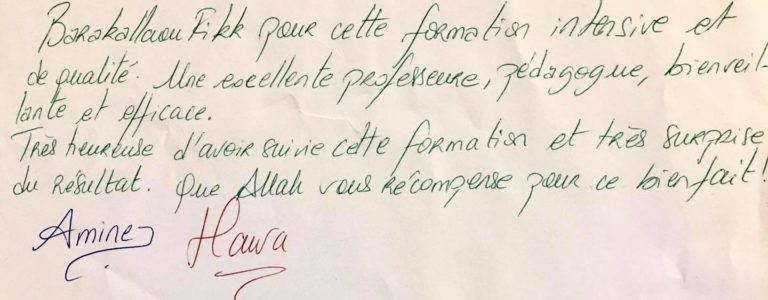 Barakallaou Fikk pour cette formation intensive et
de qualité. Une excellente professeure, pédagogue, bienveil-
lante et efficace.
Très heureuse d'avoir suivie cette formation et très surprise
du résultat. Que Allah vous récompense pour ce bienfait!
Amine Hawa